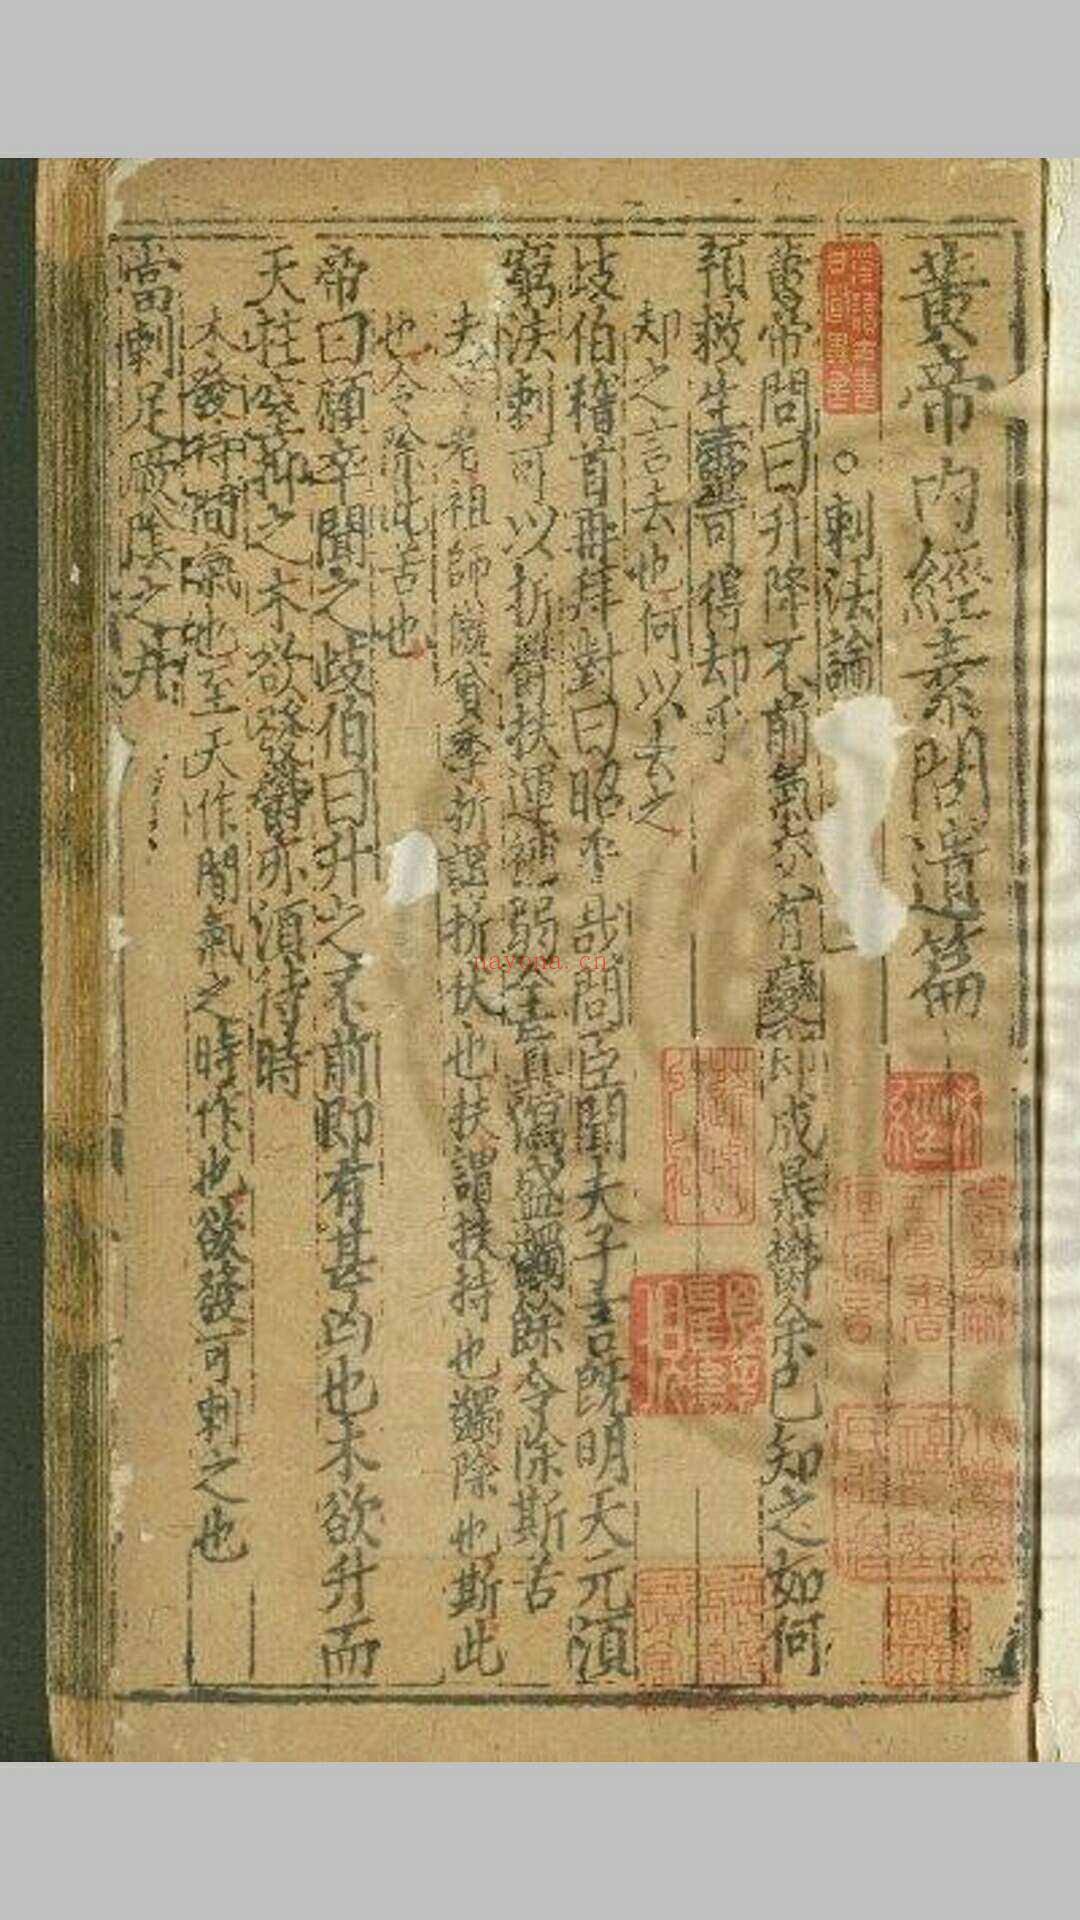 黃帝內經素問遺篇
○刺法論
黃帝問曰升降不前氣交有變即成暴鬱余已知之如何
預救生靈可得却乎
却之言去也何以去之
歧伯稽首再拜對曰昭乎哉問臣聞夫子言既明天元須
窮法刺可以折鬱扶運補弱全真瀉盛蠲餘令除斯苦
老祖師僦貸季折謂折伏也扶謂扶持也蠲除也斯此
也令除此苦也
帝曰願卒聞之歧伯曰升之不前即有甚凶也木欲升而
天柱窒抑之木欲發鬱亦須待時
木發待間氣也至天作間氣之時作也欲發可刺之也
當刺足厥陰之井
nayona.cn